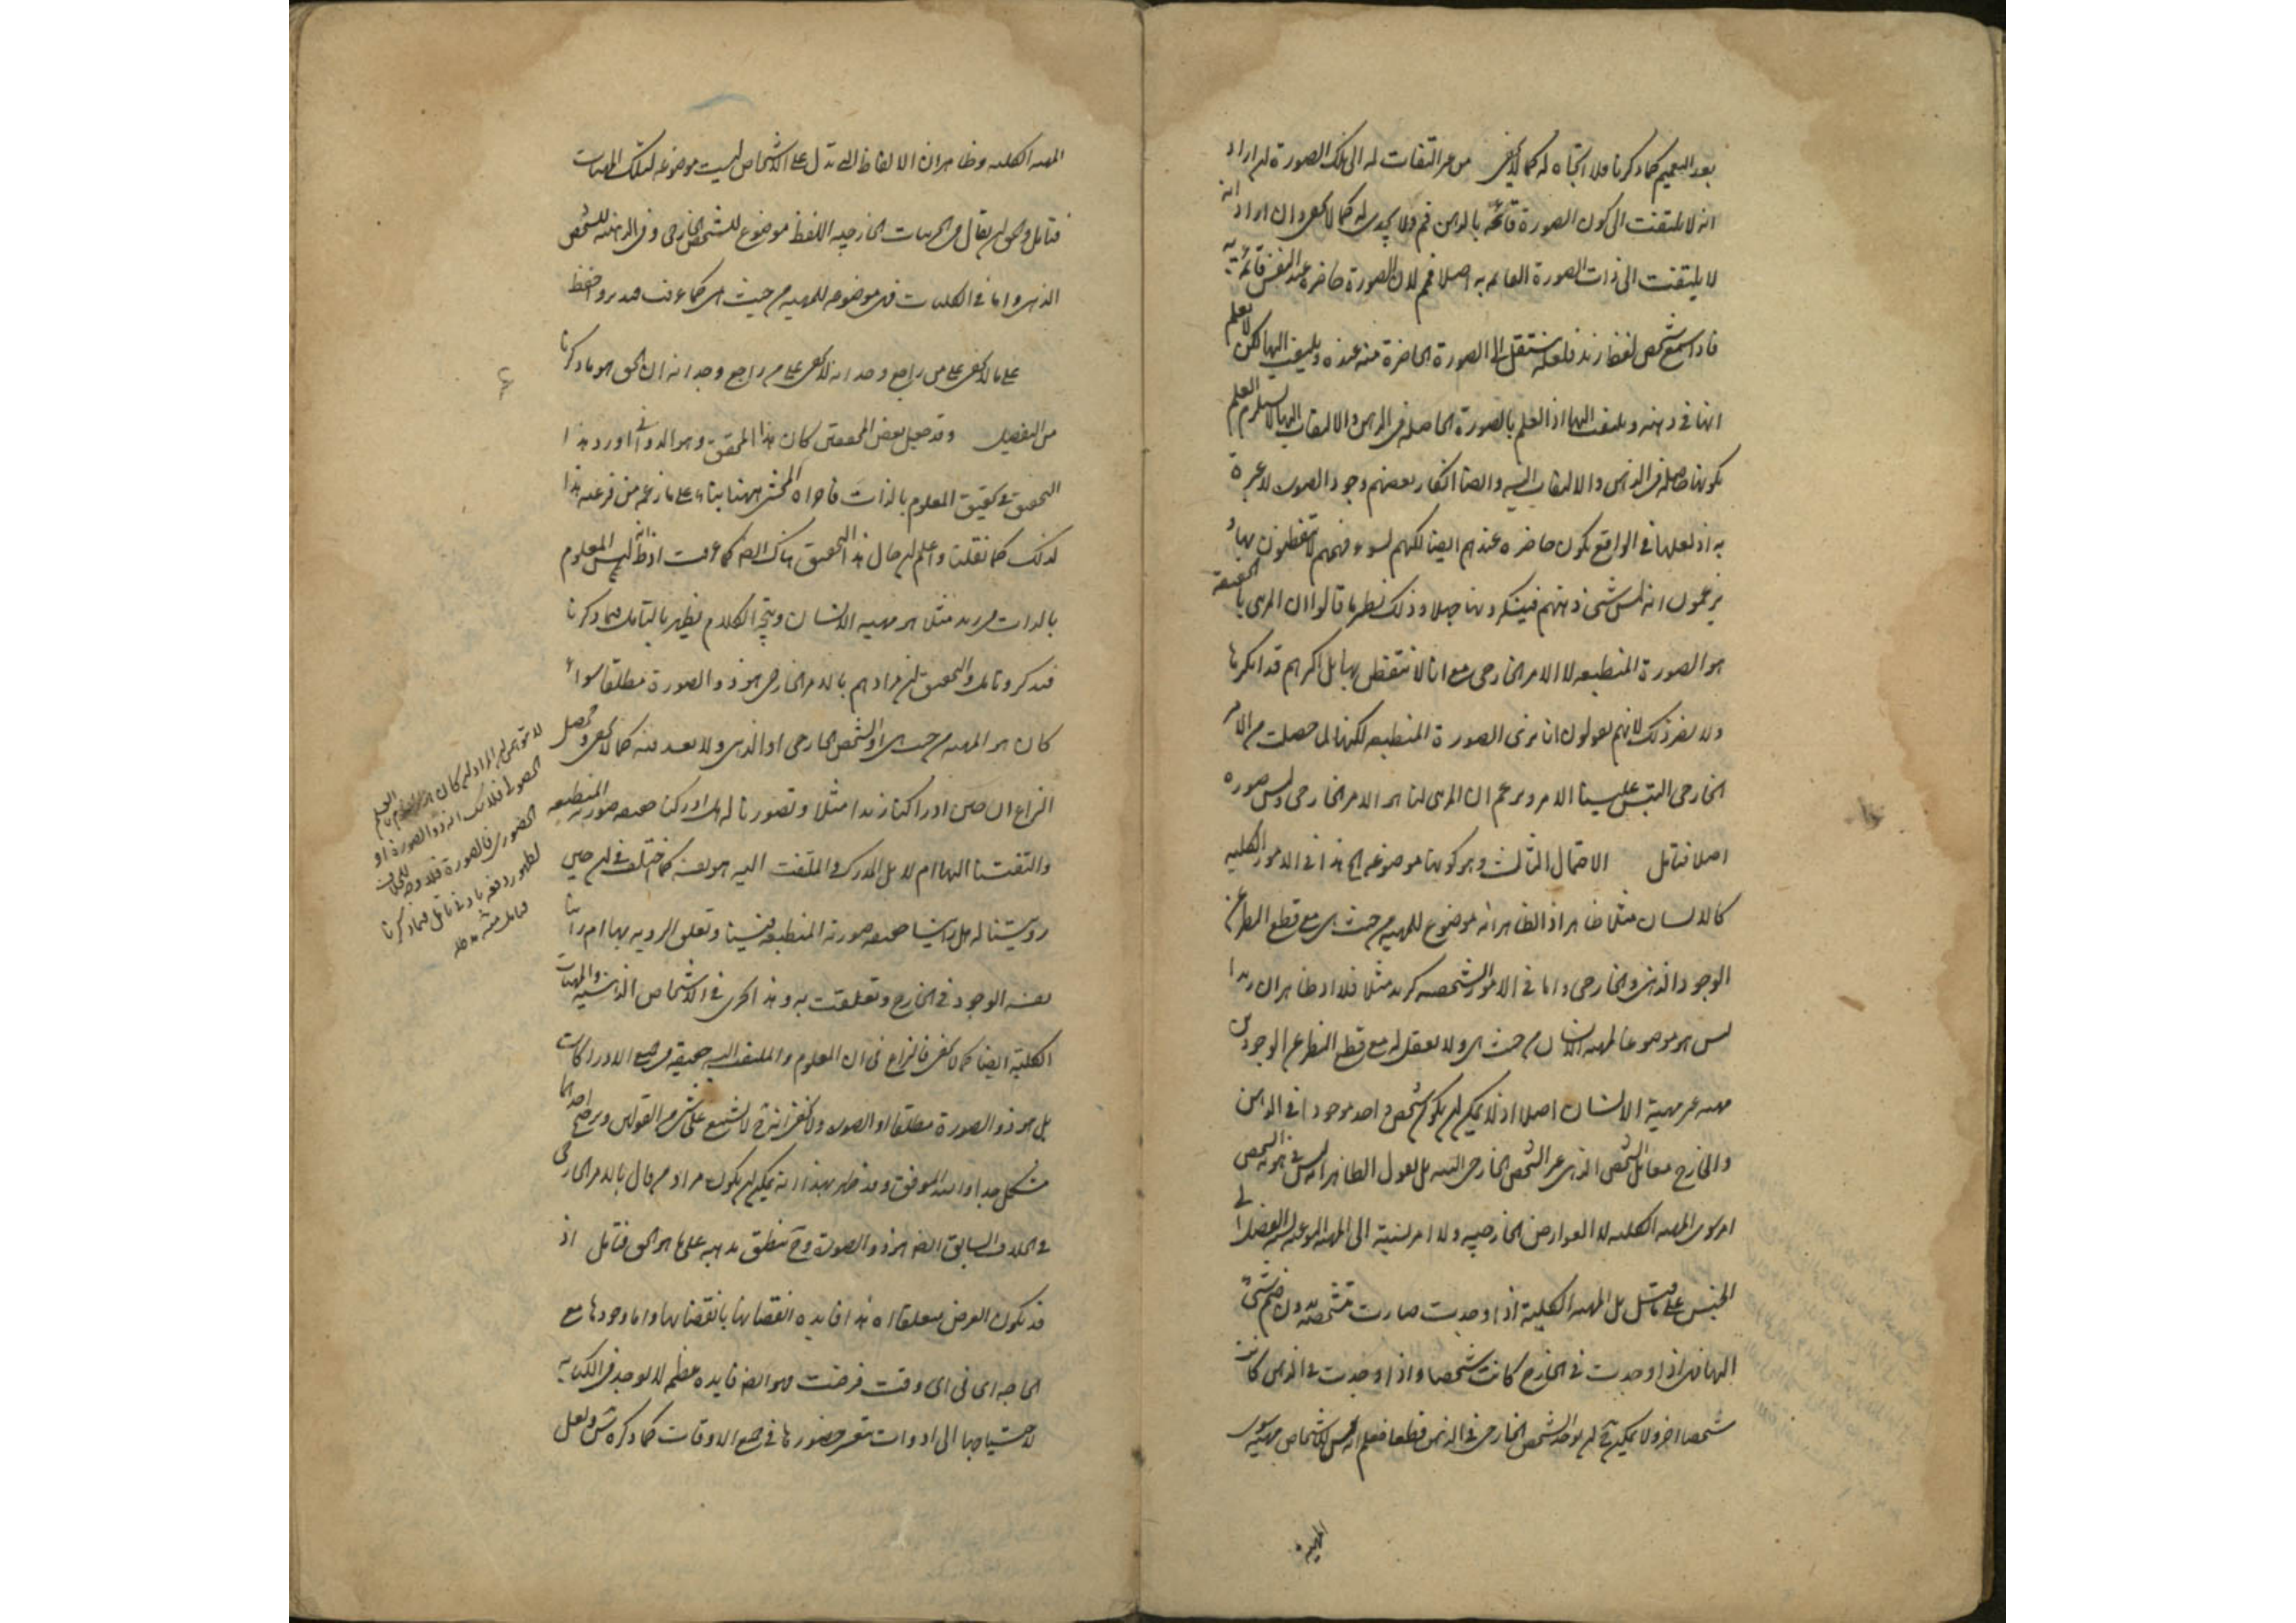 بعد التعميم كما ذكرنا فلا اتجاه له كما لا يخفى من غير التفات له الى تلك الصورة ان اراد
انه لا يلتفت الى كون الصورة قائمة بالذهن فم ولا يجدى له كما لا يخفى وان اراد انه
لا يلتفت الى ذات الصورة القائمة به اصلا فمم لان الصورة حاضرة عند النفس قائمة به
فاذا سمع شخص لفظ زيد فلعله ينتقل الى الصورة الحاضرة منه عنده ويلتفت اليها لكن لا يعلم
انها فى ذهنه ويلتفت اليها اذ العلم بالصورة الحاصلة فى الذهن والالتفات اليها لا يستلزم العلم
بكونها حاصلة فى الذهن والالتفات اليه وايضا انكار بعضهم وجود الصورة لا عبرة
به اذ لعلها فى الواقع يكون حاضرة عندهم ايضا لكنهم لسوء فهمهم لا يتفطنون بها و
يزعمون انه ليس شئ فى ذهنهم فينكرونها جهلا وذلك نظير ما قالوا ان المرئى بالحقيقة
هو الصورة المنطبعة لا الامر الخارجى مع انا لا نتفطن بها بل اكثرهم قد انكرها
ولا يضر ذلك لانهم يقولون انا نرى الصورة المنطبعة لكنها لما حصلت من الامر
الخارجى التبس علينا الامر ونزعم ان المرئى لنا هو الامر الخارجى وليس صورة
اصلا فتامل الاحتمال الثالث وهو كونها موضوعة الخ هذا فى الامور الكلية
كالانسان مثلا ظاهر اذ الظاهر انه موضوع للمهية من حيث هى مع قطع النظر عن
الوجود الذهنى والخارجى واما فى الامور الشخصية كزيد مثلا فلا اذ ظاهر ان زيدا
ليس هو موضوعا لمهية الانسان من حيث هى ولا يعقل له مع قطع النظر عن الوجودين
مهية غير مهية الانسان اصلا اذ لا يمكن ان يكون شخص واحد موجودا فى الذهن
والخارج معا بل الشخص الذهنى غير الشخص الخارجى البتة بل نقول الظاهر انه ليس فى هوية الشخص
امر سوى المهية الكلية لا العوارض الخارجية ولا امر نسبته الى المهية النوعية نسبة الفصل الى
الجنس على ما قيل بل المهية الكلية اذا وجدت صارت متشخصة بدون ضم شئ
اليها فهى اذا وجدت فى الخارج كانت شخصا واذا وجدت فى الذهن كانت
شخصا اخر ولا يمكن ح ان يوجد الشخص الخارجى فى الذهن قطعا فعلم انه ليس للاشخاص مهية سوى
المهية
المهية الكلية وظاهر ان الالفاظ التى تدل على الاشخاص ليست موضوعة لتلك المهيات
فتامل والحق ان يقال فى الجزئيات الخارجية اللفظ موضوع للشخص الخارجى وفى الذهنية للشخص
الذهنى واما فى الكليات فهى موضوعة للمهية من حيث هى كما عرفت فتدبر واحفظ
على ما لا يخفى على من راجع وجدانه لا يخفى على من راجع وجدانه ان الحق هو ما ذكرنا
من التفصيل وقد جعل بعض المحققين كان هذا المحقق وهو الدوانى اورد هذا
التحقيق فى تحقيق المعلوم بالذات فاجراه المحشى ههنا بناء على ما زعمه من فرعية هذا
لذلك كما نقلنا واعلم ان حال هذا التحقيق هناك ايضا كما عرفت اذ ظ انه ليس المعلوم
بالذات من زيد مثلا هو مهية الانسان ويتجه الكلام ويظهر بالتامل فيما ذكرنا
فتذكر وتامل والتحقيق ان مرادهم بالامر الخارجى هو ذو الصورة مطلقا سواء
كان هو المهية من حيث هى او الشخص الخارجى او الذهنى ولا بعد فيه كما لا يخفى ومحصل
النزاع ان حين ادراكنا زيدا مثلا وتصورنا له هل ادركنا حقيقة صورته المنطبعة
والتفتنا اليها ام لا بل المدرك والملتفت اليه هو نفسه كما اختلف فى ان حين
رؤيتنا له هل راينا حقيقة صورته المنطبعة فينا وتعلق الرؤية بها ام راينا
نفسه الموجود فى الخارج وتعلقت به وهذا يجرى فى الاشخاص الذهنية والمهيات
الكلية ايضا كما لا يخفى فالنزاع فى ان المعلوم والملتفت اليه حقيقة فى جميع الادراكات
بل هو ذو الصورة مطلقا او الصورة ولا يخفى ان ترجيح احدهما
مشكل جدا والله الموفق وقد ظهر بهذا انه يمكن ان يكون مراد من قال بالامر الخارجى
فى الخلاف السابق ايضا هو ذو الصورة وح ينطبق مذهبه على ما هو الحق فتامل اذ
قد يكون الغرض متعلقا اه هذا فايدة انقضائها بانقضائها واما وجودها مع
الحاجة اى فى اى وقت فرضت فهو ايضا فايدة عظيمة لا يوجد فى الكتابة
لاحتياجها الى ادوات يتعسر حضورها فى جميع الاوقات كما ذكره ش ولعل
لا يتوهم ان المراد ان كان العلم
الحصولى فلا شك انه ذو الصورة او
الحضورى فالصورة فلا وجه للخلاف
لظهور دفعه بادنى تامل فيما ذكرنا
فتامل منه مد ظله